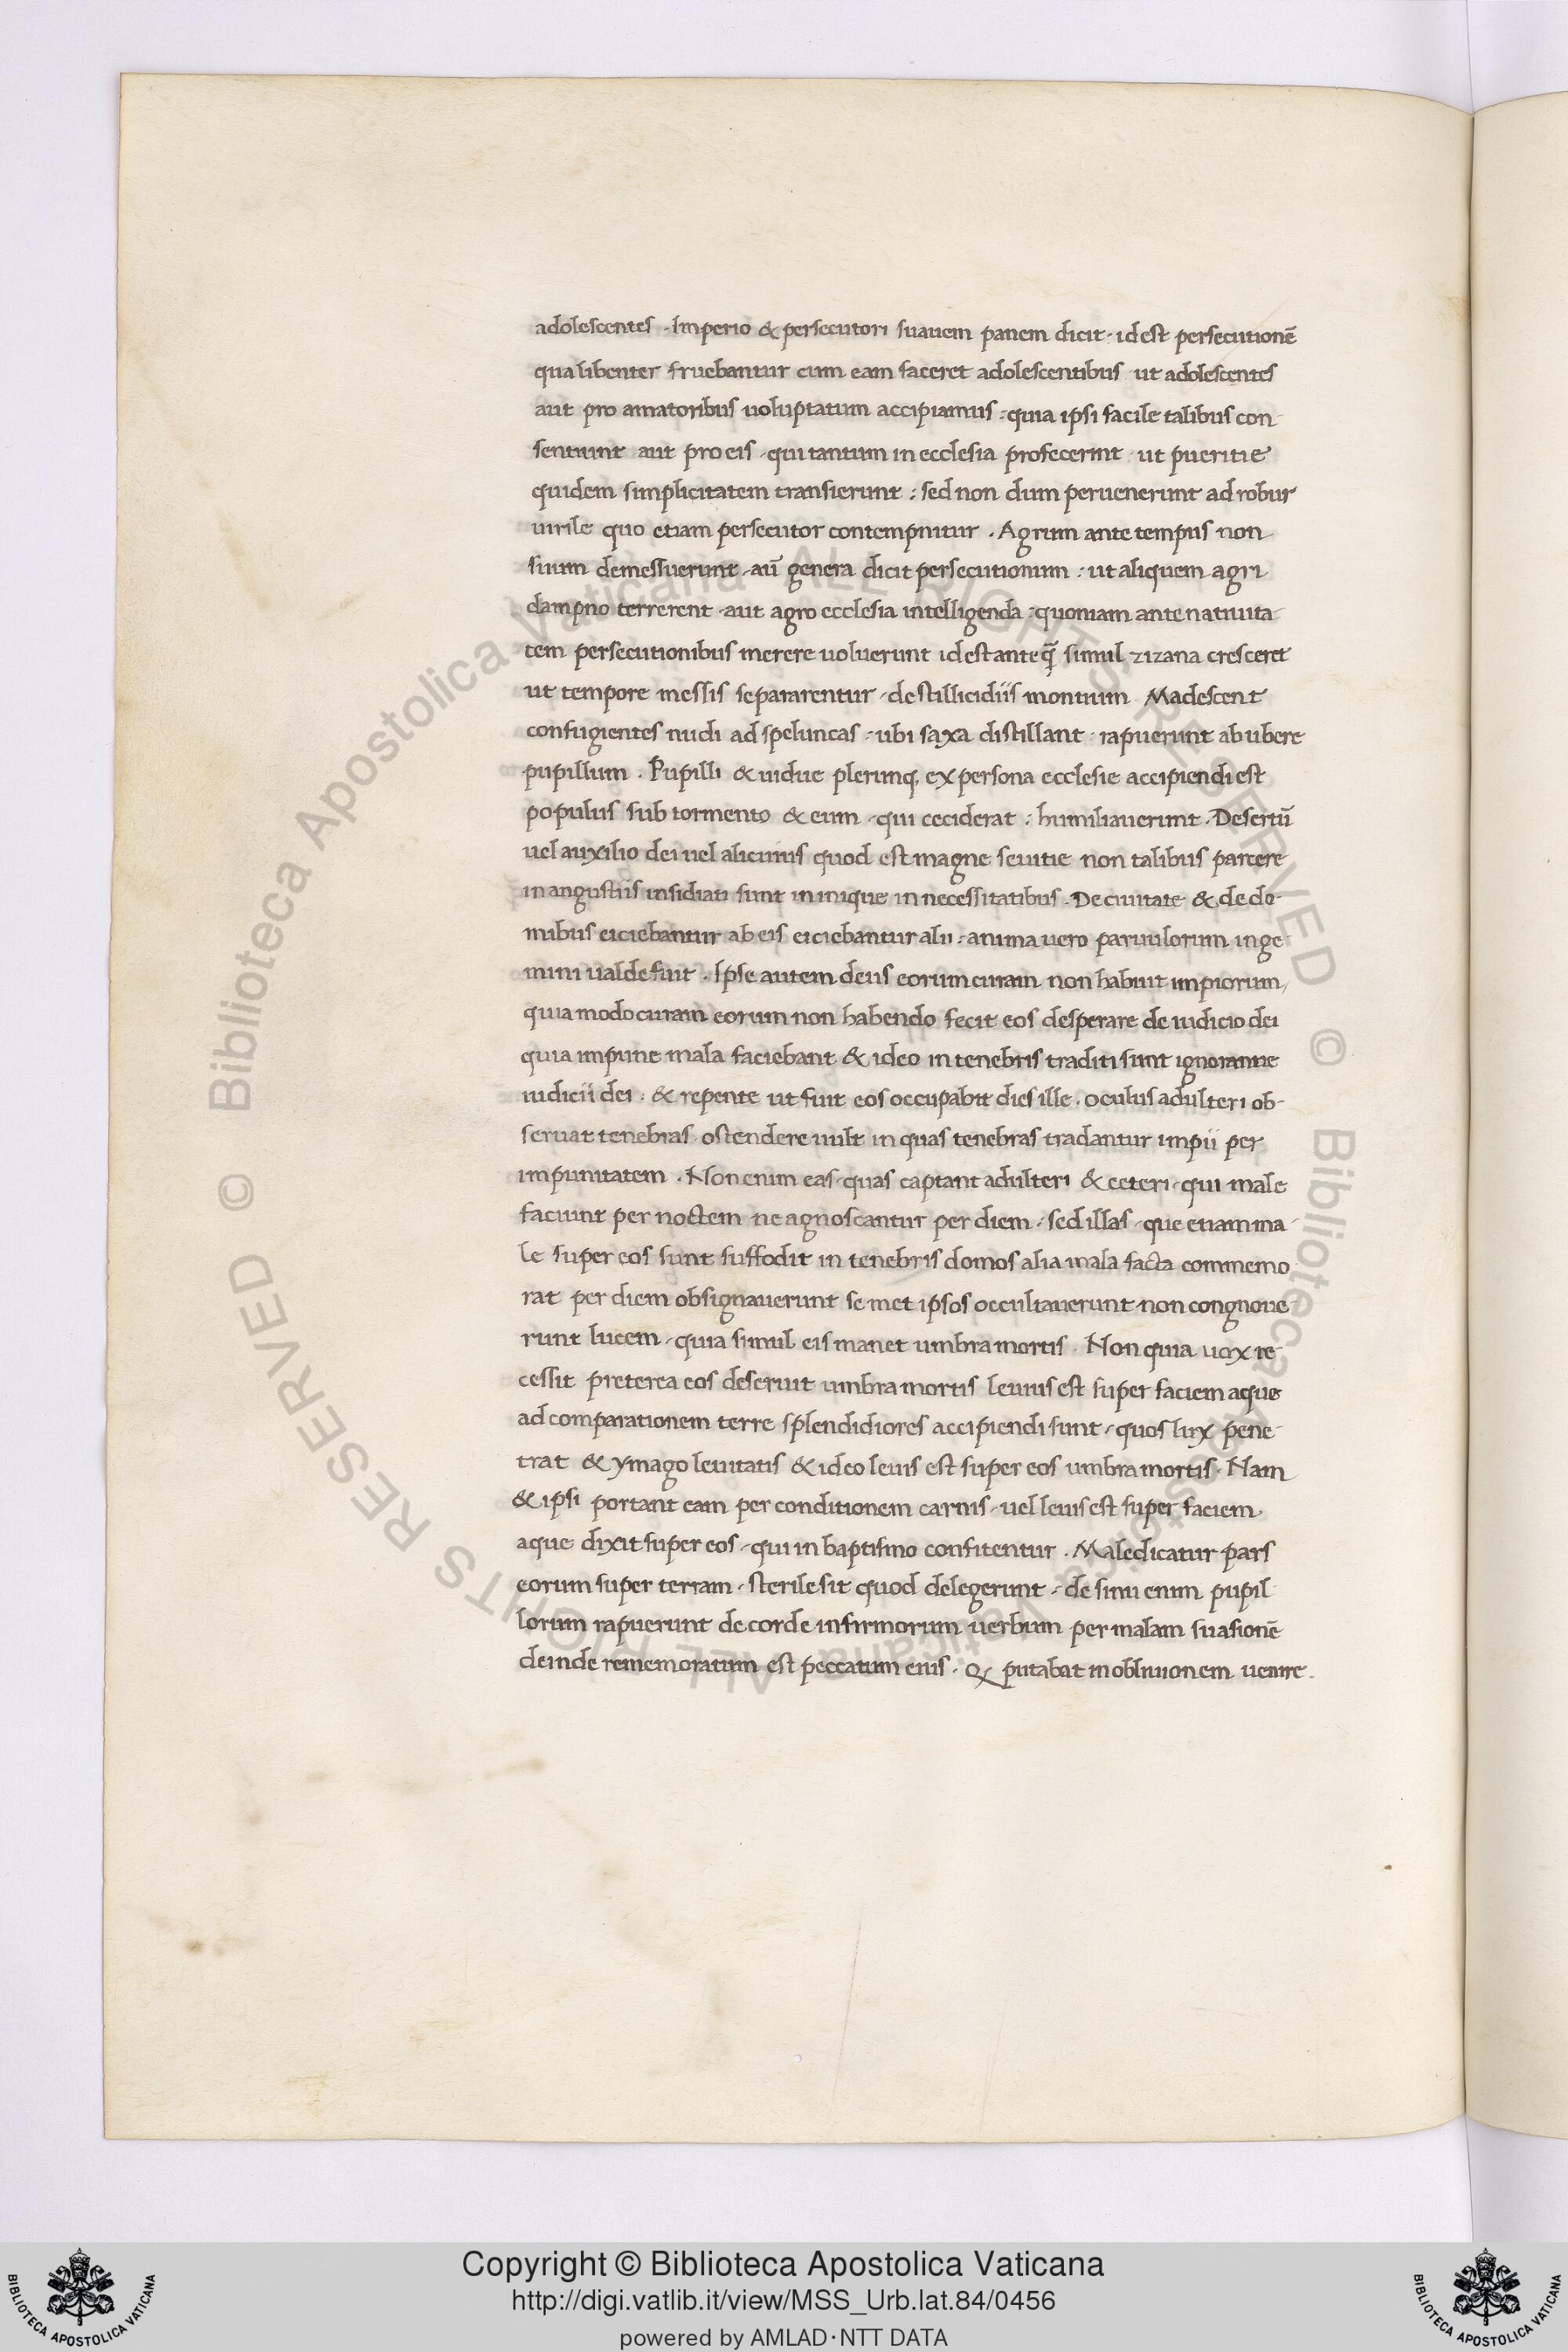 adolescentes · Imperio & persecutori suauem panem dicit · id est persecutionē
qua libenter fruebantur cum eam faceret adolescentibus ut adolescentes
aut pro amatoribus uoluptatum accipiamus : quia ipsi facile talibus con
sentiunt aut pro eis · qui tantum in ecclesia profecerint · ut pueritie
quidem simplicitatem transierunt : sed non dum peruenerunt ad robur
uirile quo etiam persecutor contempnitur · Agrum ante tempus non
suum demessuerunt · aū genera dicit persecutionum : ut aliquem agri
dampno terrerent · aut agro ecclesia intelligenda : quoniam ante natiuita-
tem persecutionibus merere uoluerunt id est anteq̄ simul zizana cresceret
ut tempore messis separarentur · de stillicidiis montium Madescent
confugientes nudi ad speluncas · ubi saxa distillant · rapuerunt ab ubere
pupillum · Pupilli & uidue plerunq, ex persona ecclesie accipiendi est
populus sub tormento & eum · qui ceciderat : humiliauerunt · Desertū
uel auxilio dei uel alicuius quod est magne seuitie non talibus parcere
in angustiis insidiati sunt in inique in necessitatibus · De ciuitate & de do-
mibus eiciebantur ab eis eiciebantur alii · anima uero paruulorum inge
mini ualde fuit · Ipse autem deus eorum curam non habuit impiorum,
quia modo curam eorum non habendo fecit eos desperare de iudicio dei
quia impune mala faciebant & ideo in tenebris traditi sunt ignorantie
iudicii dei · & repente ut fuit eos occupabit dies ille · oculus adulteri ob-
seruat tenebras ostendere uult in quas tenebras tradantur impii per
impunitatem · Non enim eas · quas captant adulteri & ceteri · qui male
faciunt per noctem ne agnoscantur per diem · sed illas · que etiam ma-
le super eos sunt suffodit in tenebris domos alia mala facta commemo
rat per diem obsignauerunt se met ipsos occultauerunt non congnoue-
runt lucem · quia simul eis manet umbra mortis · Non quia uox re-
cessit preterea eos deseruit umbra mortis leuius est super faciem aque
ad comparationem terre splendidiores accipiendi sunt · quos lux pene-
trat & ymago leuitatis & ideo leuis est super eos umbra mortis · Nam
& ipsi portant eam per conditionem carnis · uel leuis est super faciem
aque dixit super eos · qui in baptismo confitentur · Maledicatur pars
eorum super terram · sterile sit quod delegerunt · de sinu enim pupil
lorum rapuerunt de corde infirmorum uerbum per malam suasionē
deinde rememoratum est peccatum eius · Q putabat in obliuionem uenire ·
© Biblioteca Apostolica Vaticana ALL RIGHTS RESERVED
© Biblioteca Apostolica Vaticana ALL RIGHTS RESERVED
Copyright © Biblioteca Apostolica Vaticana
http://digi.vatlib.it/view/MSS_Urb.lat.84/0456
powered by AMLAD·NTT DATA
BIBLIOTECA APOSTOLICA VATICANA
BIBLIOTECA APOSTOLICA VATICANA